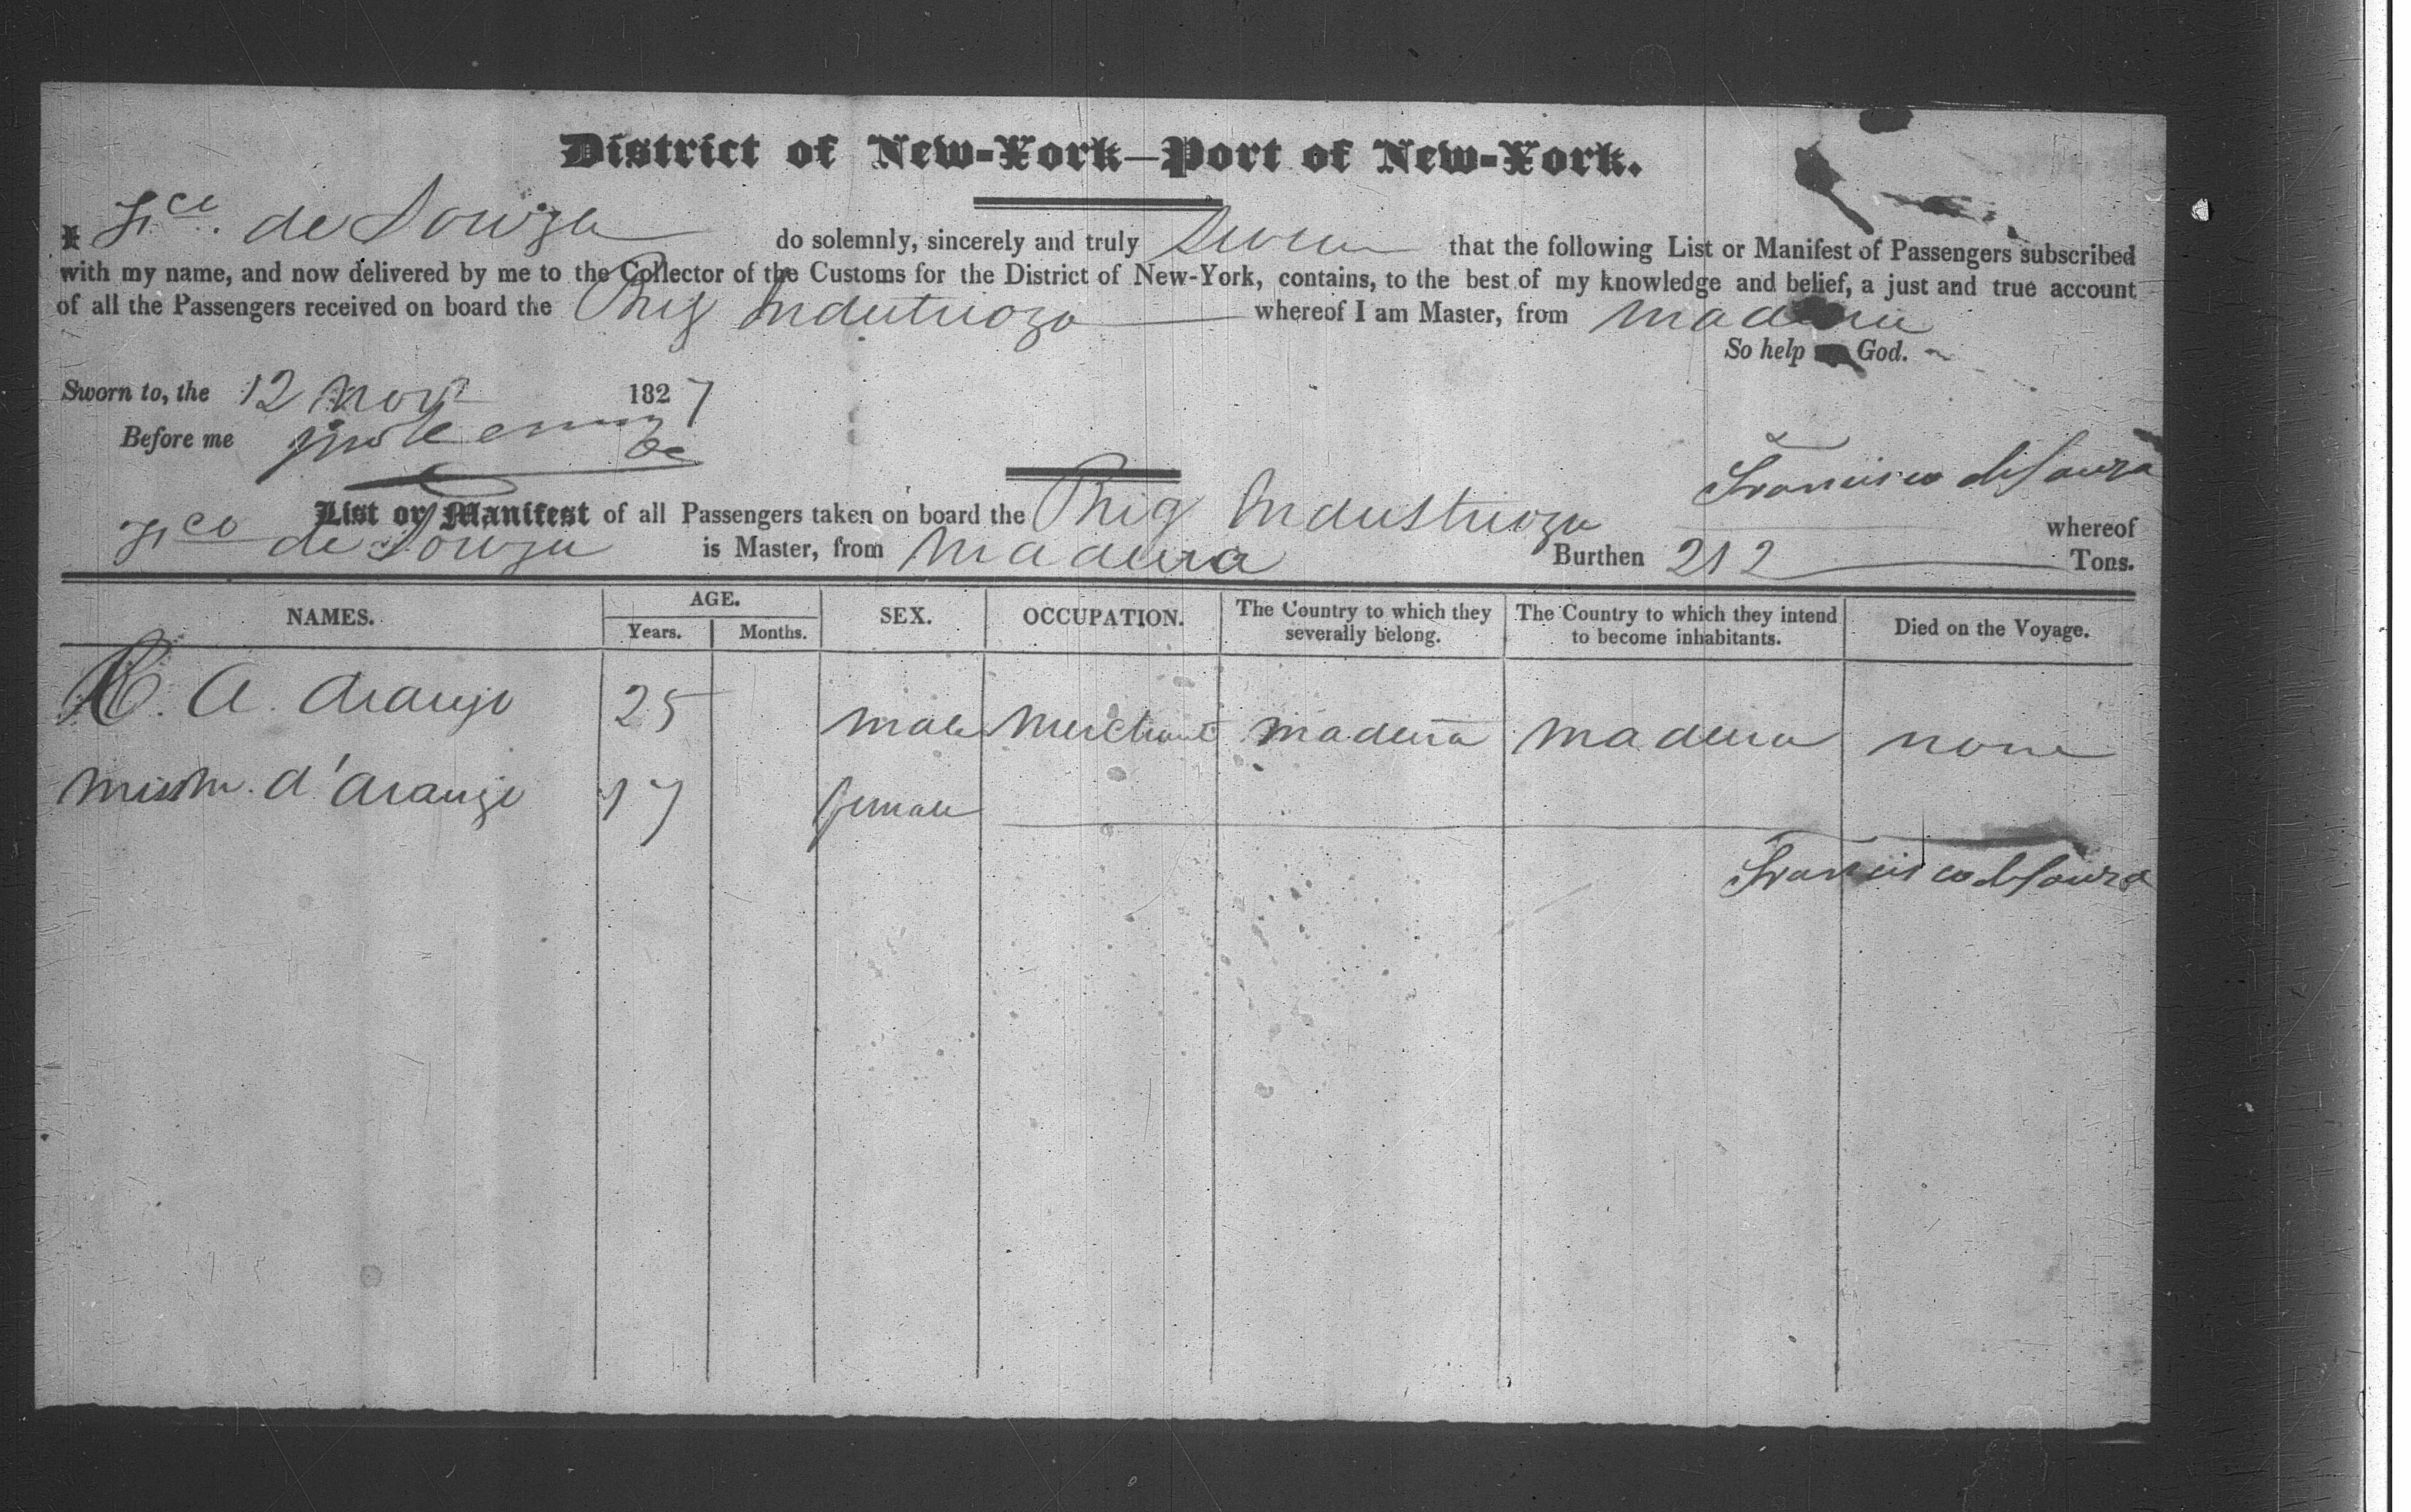 District of New-York—Port of New-York.
I Fco. de Souza do solemnly, sincerely and truly Swear that the following List or Manifest of Passengers subscribed
with my name, and now delivered by me to the Collector of the Customs for the District of New-York, contains, to the best of my knowledge and belief, a just and true account
of all the Passengers received on board the Brig Indutrioza whereof I am Master, from Madeira
So help God.
Sworn to, the 12 Nov 1827
Before me
Francisco de Souza
List or Manifest of all Passengers taken on board the Brig Industrioza whereof
Fco de Souza is Master, from Madeira Burthen 212 Tons.
NAMES. AGE. SEX. OCCUPATION. The Country to which they severally belong. The Country to which they intend to become inhabitants. Died on the Voyage.
Years. Months.
A. Araujo 25 male Merchant Madeira Madeira none
d'Araujo 17 female
Francisco de Souza